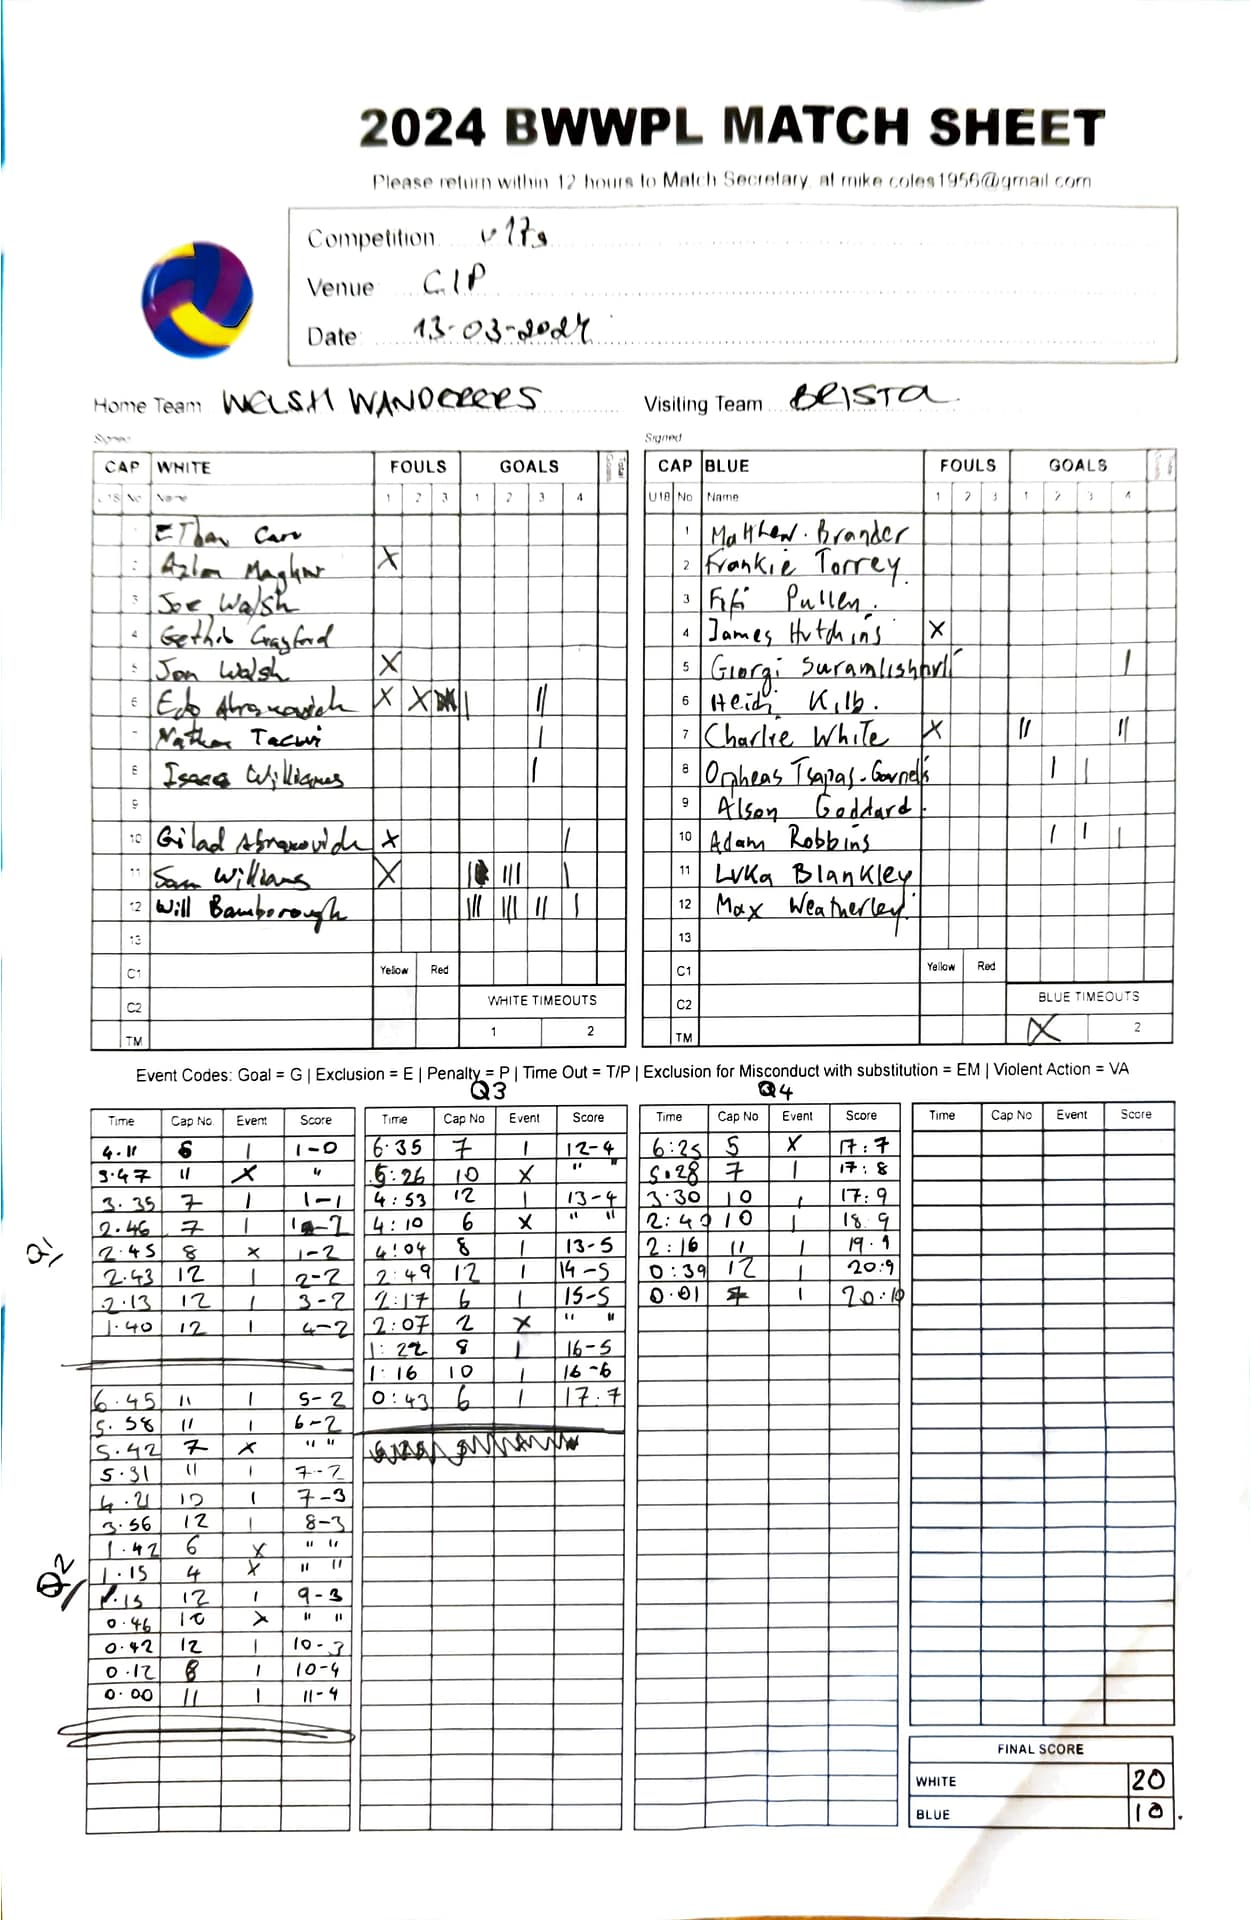 2024 BWWPL MATCH SHEET
Please return within 12 hours to Match Secretary, at mike coles1956@gmail com
Competition u17s
Venue CIP
Date 13-03-2024
Home Team WELSH WANDERERS
Visiting Team BRISTOL
Signed
Signed
CAP WHITE FOULS GOALS Total Goals
U18 No Name 1 2 3 1 2 3 4
Ethan Carr
2 X
3 Joe Walsh
4 Gethin
5 Jon Walsh X
6 Edo Abramovich X X | ||
Nathan |
8 Isaac Williams |
9
10 Gilad Abramovich X |
11 Sam Williams X | ||| |
12 Will Bamborough ||| ||| || |
13
C1 Yellow Red
C2 WHITE TIMEOUTS
TM 1 2
CAP BLUE FOULS GOALS
U18 No Name 1 2 3 1 2 3 4
1 Matthew. Brander
2 Frankie Torrey.
3 Fifi Pullen.
4 James Hutchins X
5 Giorgi |
6 Heidi Kilb.
7 Charlie White X || ||
8 Orpheas | |
9 Alson Goddard
10 Adam Robbins | | |
11 Luka Blankley
12 Max Weatherley
13
C1 Yellow Red
C2 BLUE TIMEOUTS
TM X 2
Event Codes: Goal = G | Exclusion = E | Penalty = P | Time Out = T/P | Exclusion for Misconduct with substitution = EM | Violent Action = VA
Q1
Time Cap No Event Score
4.11 6 1 1-0
3.47 11 X "
3.35 7 1 1-1
2.46 7 1 1-2
2.45 8 x 1-2
2.43 12 1 2-2
2.13 12 1 3-2
1.40 12 1 4-2
Q2
6.45 11 1 5-2
5.58 11 1 6-2
5.42 7 x " "
5.31 11 1 7-2
4.21 10 1 7-3
3.56 12 1 8-3
1.42 6 X " "
1.15 4 X " "
1.15 12 1 9-3
0.46 10 X " "
0.42 12 1 10-3
0.12 8 1 10-4
0.00 11 1 11-4
Q3
Time Cap No Event Score
6.35 7 1 12-4
5:26 10 X " "
4:53 12 1 13-4
4:10 6 X " "
4:04 8 1 13-5
2:49 12 1 14-5
2:17 6 1 15-5
2:07 2 X " "
1:22 8 1 16-5
1:16 10 1 16-6
0:43 6 1 17.7
Q4
Time Cap No Event Score
6:25 5 X 17:7
5.28 7 1 17:8
3:30 10 1 17:9
2:40 10 1 18.9
2:16 11 1 19.9
0:39 12 1 20:9
0.01 7 1 20:10
Time Cap No Event Score
FINAL SCORE
WHITE 20
BLUE 10.